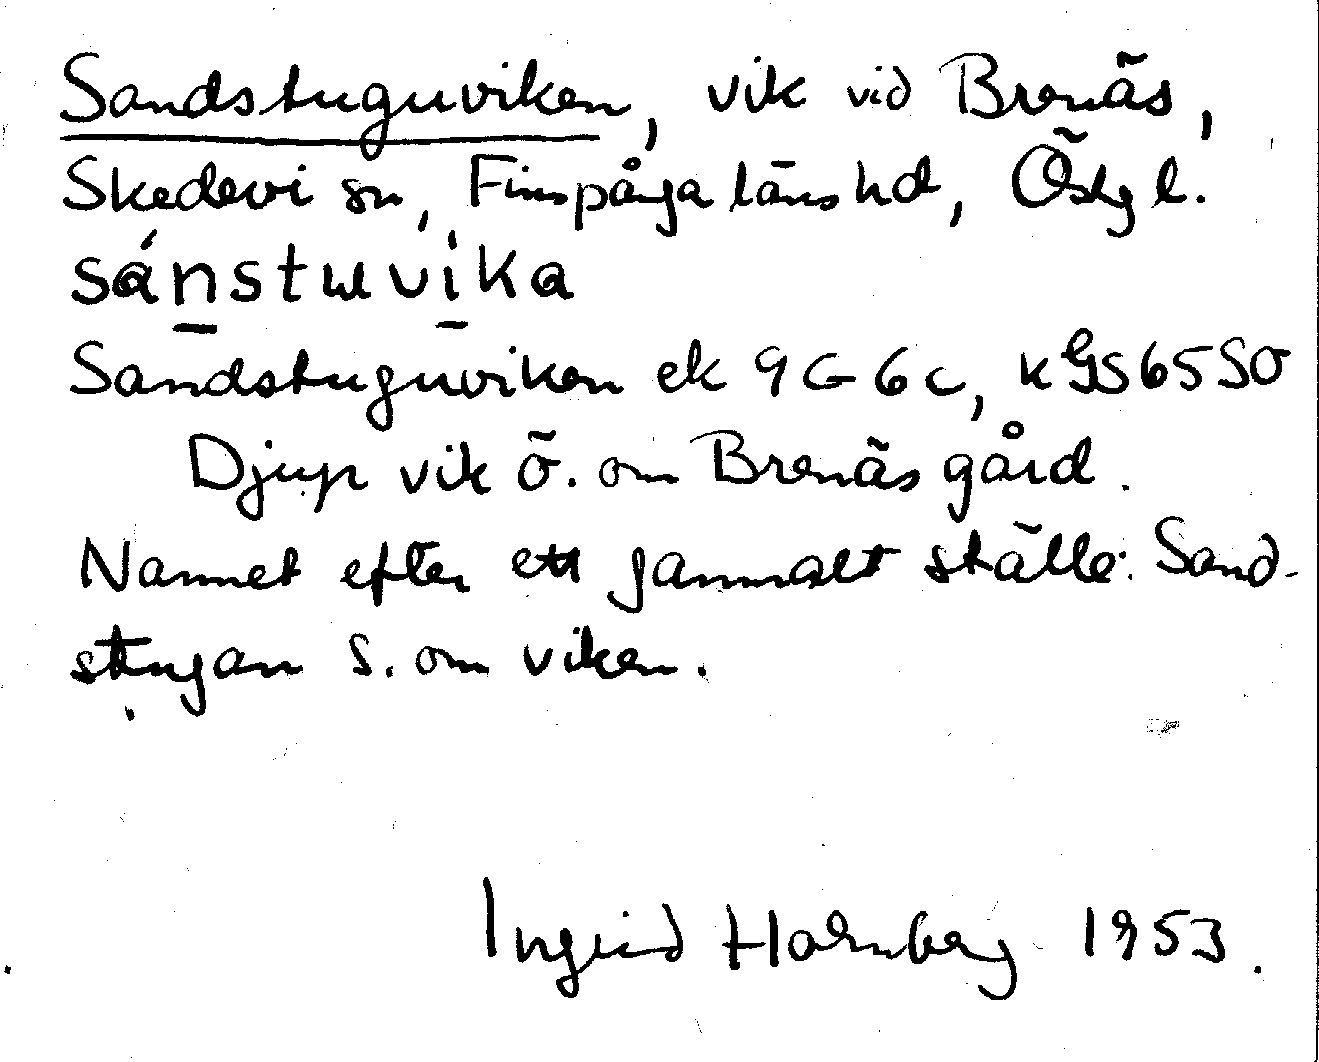 Sandstuguviken, vik vid Brenäs,
Skedevi sn, Finspånga läns hd, Östg l.
sánstuvìka
Sandstuguviken ek 9G6c, kGS65SO
Djup vik ö. om Brenäs gård.
Namnet efter ett gammalt ställe: Sand-
stugan S. om viken.
Ingrid Holmberg 1953.